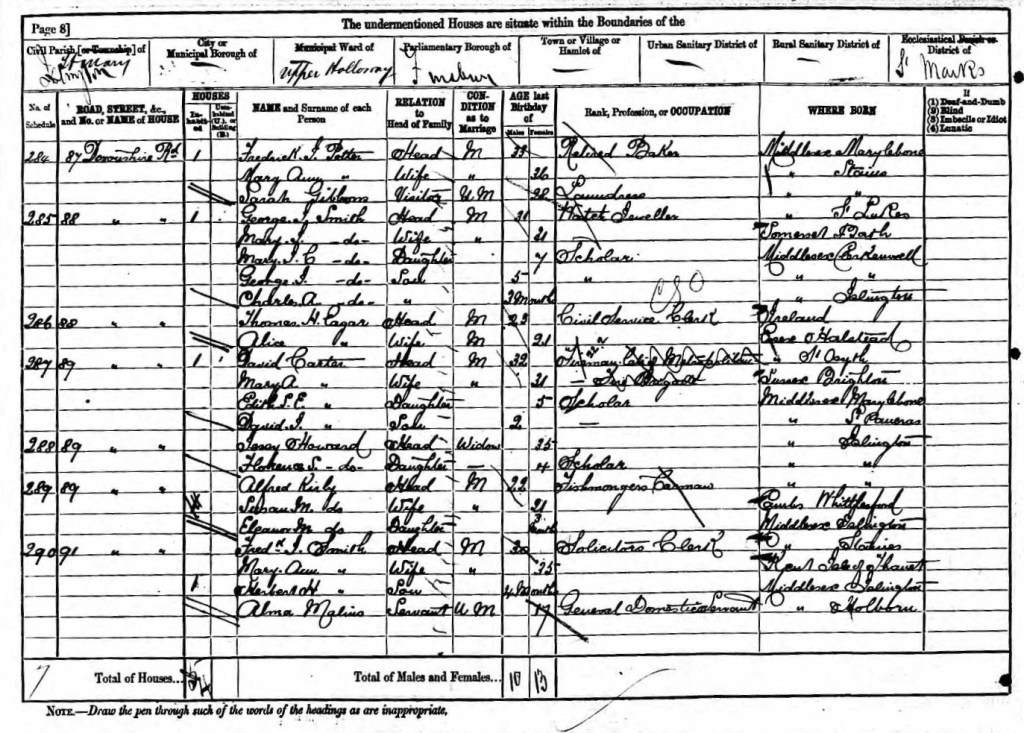 Page 8]
The undermentioned Houses are situate within the Boundaries of the
Civil Parish [or Township] of
City or Municipal Borough of
Municipal Ward of
Parliamentary Borough of
Town or Village or Hamlet of
Urban Sanitary District of
Rural Sanitary District of
Ecclesiastical District of
St Mary Islington — Upper Holloway Finsbury — — — St Marks
No. of Schedule
ROAD, STREET, &c., and No. or NAME of HOUSE
HOUSES
Inhabited
Uninhabited (U.), or Building (B.)
NAME and Surname of each Person
RELATION to Head of Family
CONDITION as to Marriage
AGE last Birthday of
Males Females
Rank, Profession, or OCCUPATION
WHERE BORN
If
(1) Deaf-and-Dumb
(2) Blind
(3) Imbecile or Idiot
(4) Lunatic
284 87 Devonshire Rd 1 Fredrick J. Potter Head M 33 Retired Baker Middlesex Marylebone
Mary Ann " Wife " 26 " Staines
Sarah Gibbons Visitor U M 28 Laundress " "
285 88 " " 1 George J. Smith Head M 31 Watch Jeweller " St Lukes
Mary J. -do- Wife " 31 Somerset Bath
Mary J. C -do- Daughter 7 Scholar Middlesex Clerkenwell
George J. -do- Son 5 " " "
Charles A. -do- " 3 Months " Islington
286 88 " " Thomas H. Head M 23 Civil Service Clerk Ireland
Alice " Wife M 21 " Essex Halstead
287 89 " " 1 David Carter Head M 32 Fireman " St Osyth
Mary A. " Wife " 31 - Fire Brigade Sussex Brighton
Edith S. E. " Daughter 5 Scholar Middlesex Marylebone
David J. " Son 2 — " St Pancras
288 89 " " Howard Head Widow 35 " Islington
Florence S. -do- Daughter — 4 Scholar " "
289 89 " " Alfred Kirby Head M 22 Fishmongers Carman " "
Susan M. do Wife " 21 Cambs Whittlesford
Eleanor M. do Daughter 3 Months Middlesex Islington
290 91 " " Fredk J. Smith Head M 30 Solicitors Clerk " Staines
Mary Ann " Wife " 35 Kent Isle of Thanet
1 Herbert H " Son 4 Months Middlesex Islington
Alma Malins Servant U M 17 General Domestic Servant " Holborn
7 Total of Houses... Total of Males and Females... 10 13
NOTE.—Draw the pen through such of the words of the headings as are inappropriate.